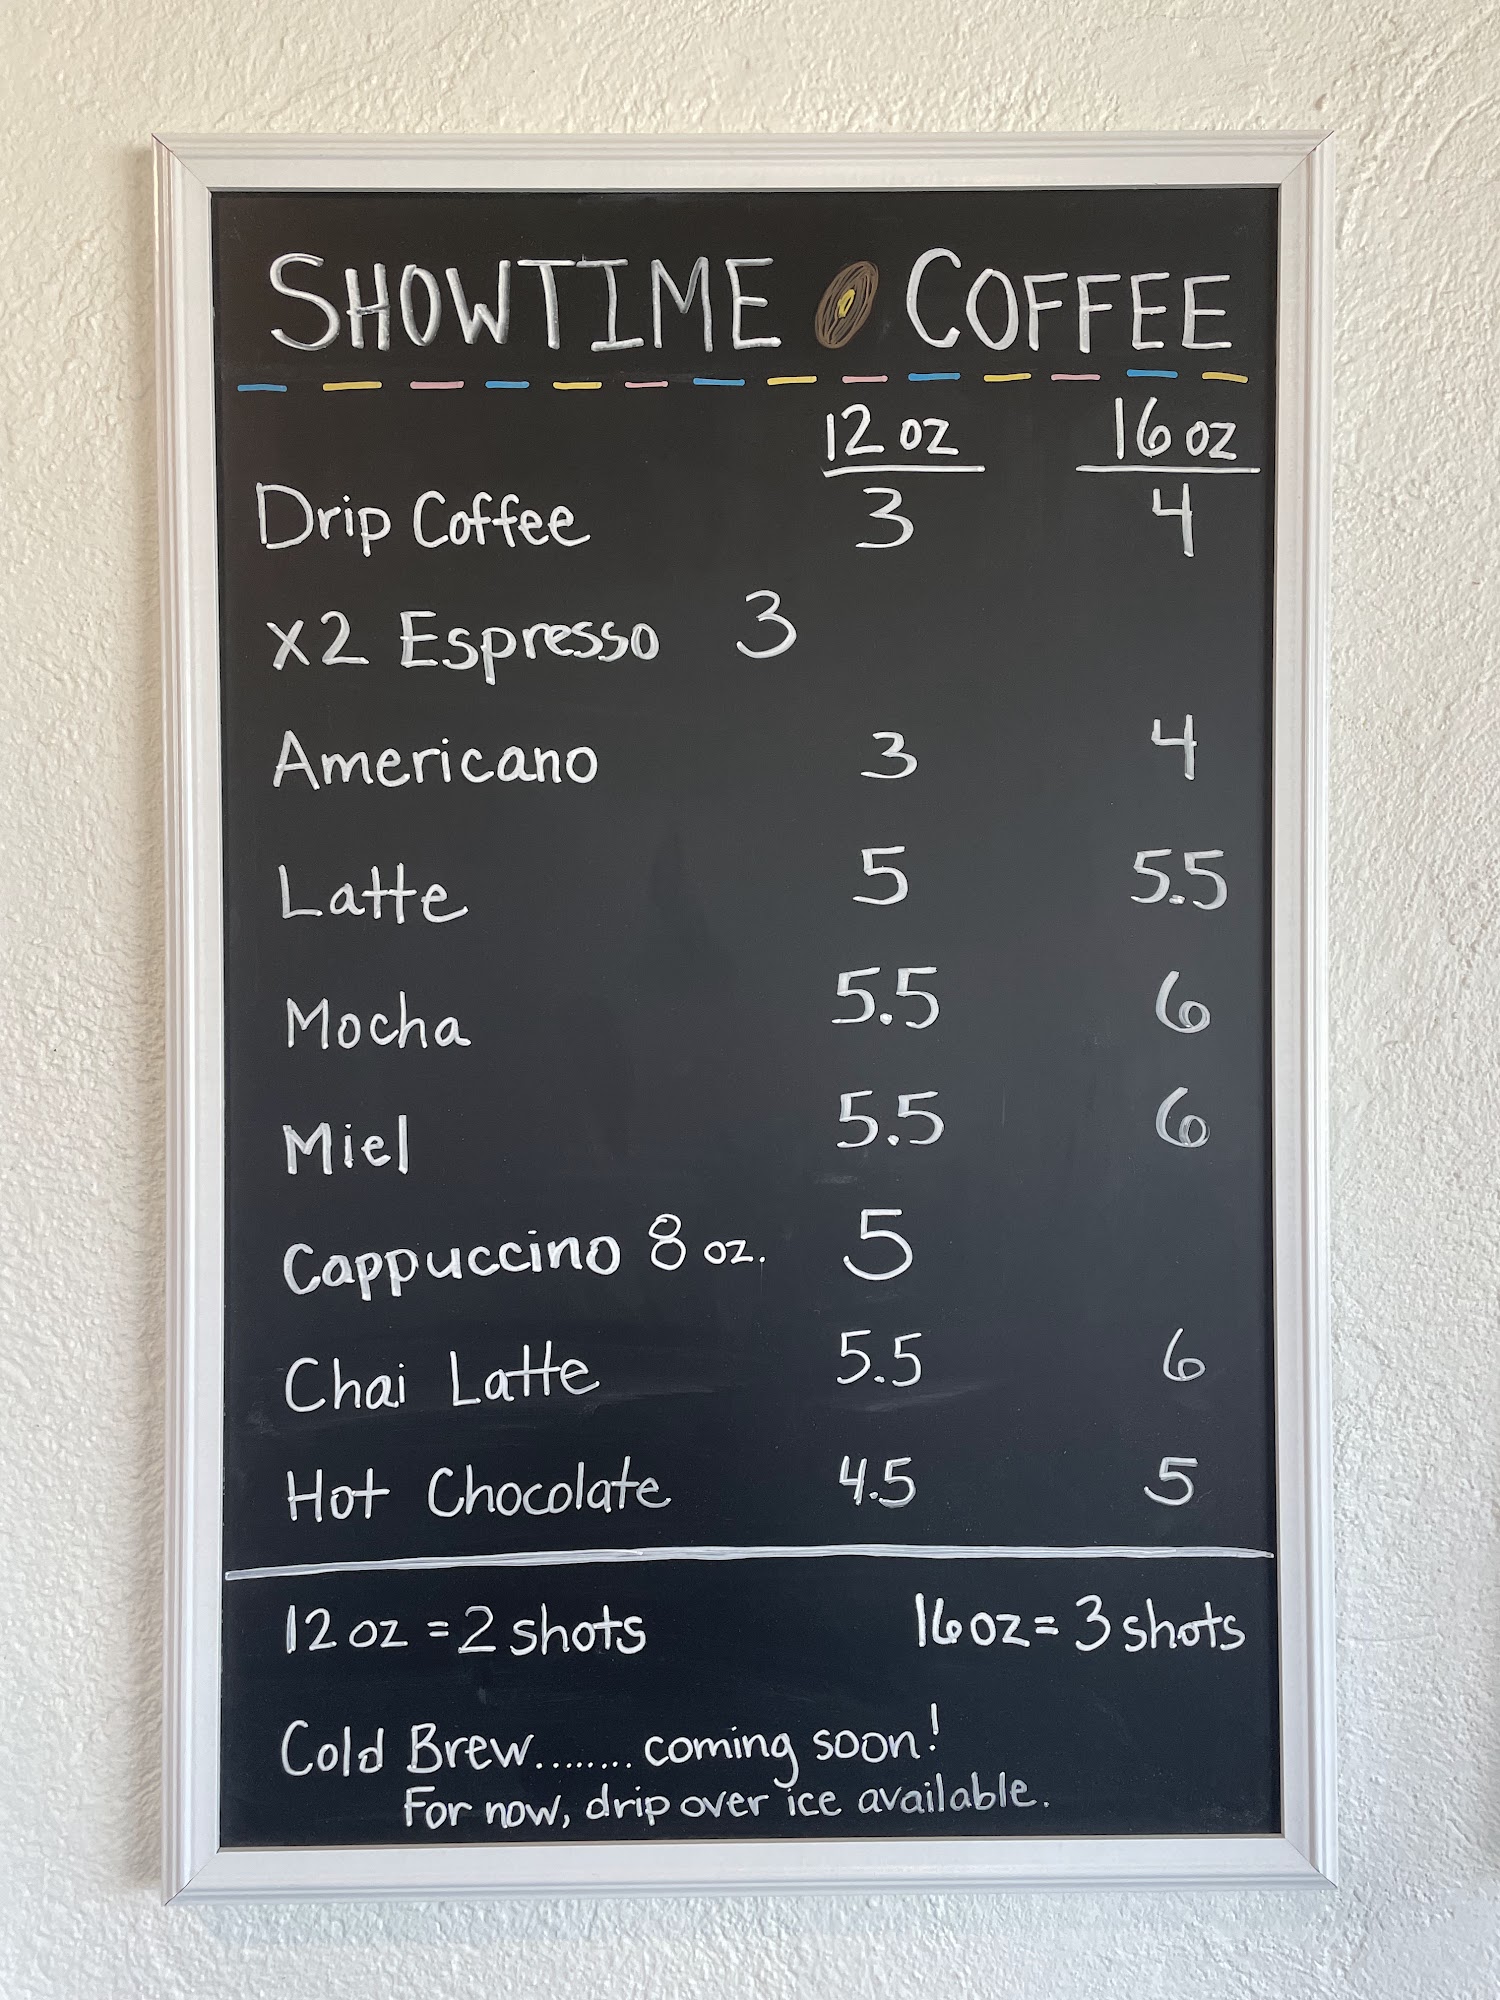 SHOWTIME COFFEE
12 oz 16 oz
Drip Coffee 3 4
x2 Espresso 3
Americano 3 4
Latte 5 5.5
Mocha 5.5 6
Miel 5.5 6
Cappuccino 8 oz. 5
Chai Latte 5.5 6
Hot Chocolate 4.5 5
12 oz = 2 shots 16 oz = 3 shots
Cold Brew........ coming soon!
For now, drip over ice available.